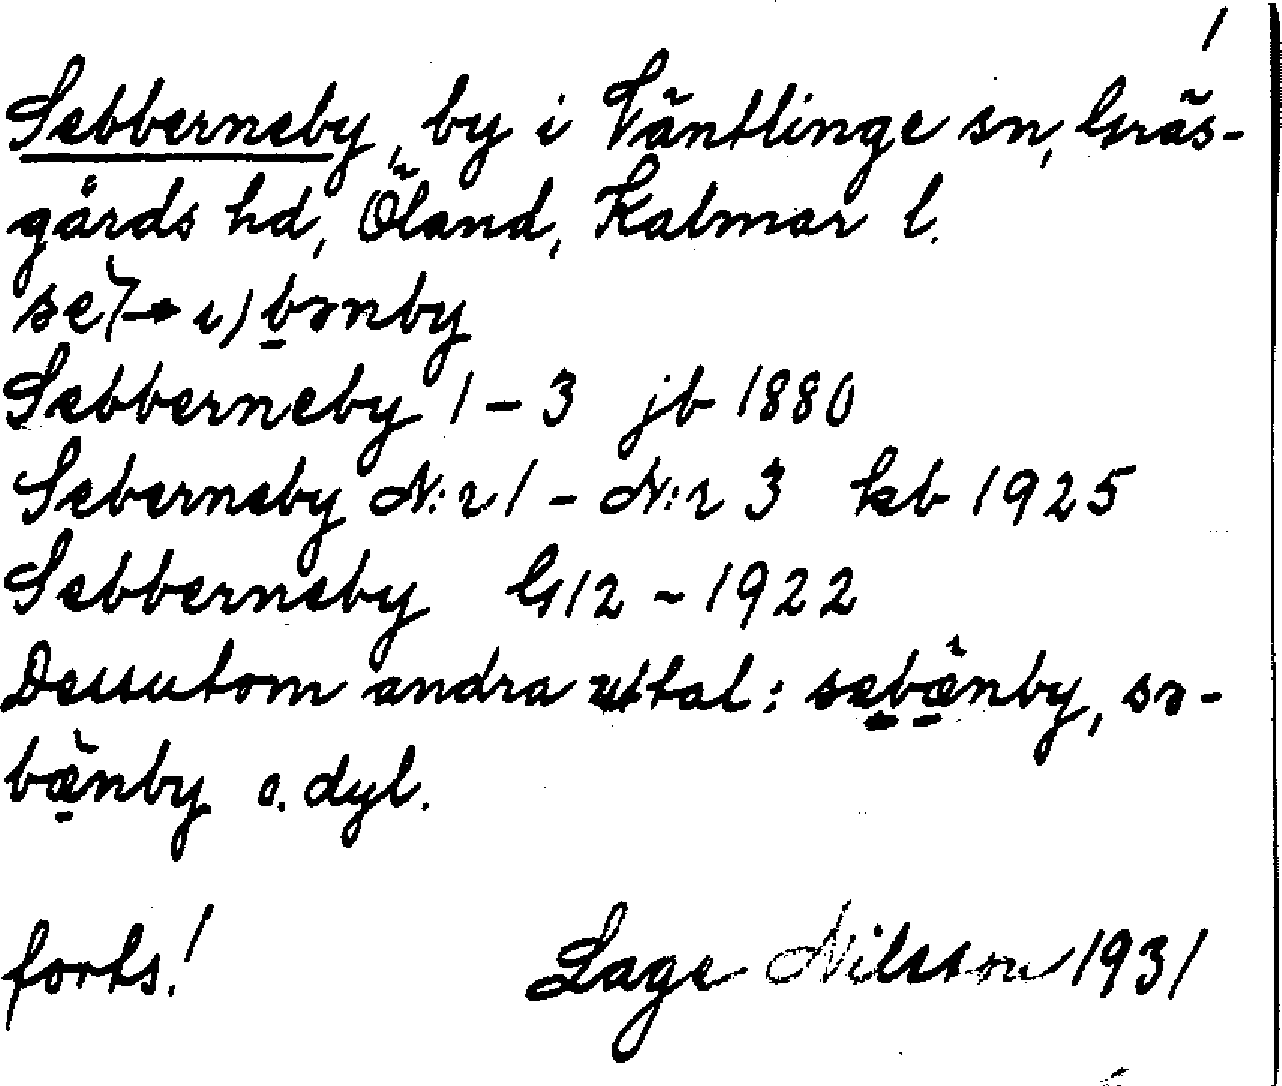 1
Sebberneby, by i Väntlinge sn, Gräs-
gårds hd, Öland, Kalmar l.
se(→ i) bənby
Sebberneby 1 – 3 jb 1880
Seberneby N:r 1 – N:r 3 kb 1925
Sebberneby G12 – 1922
Dessutom andra uttal: sebænby, sə-
bænby o. dyl.
forts! Lage Nilsson 1931